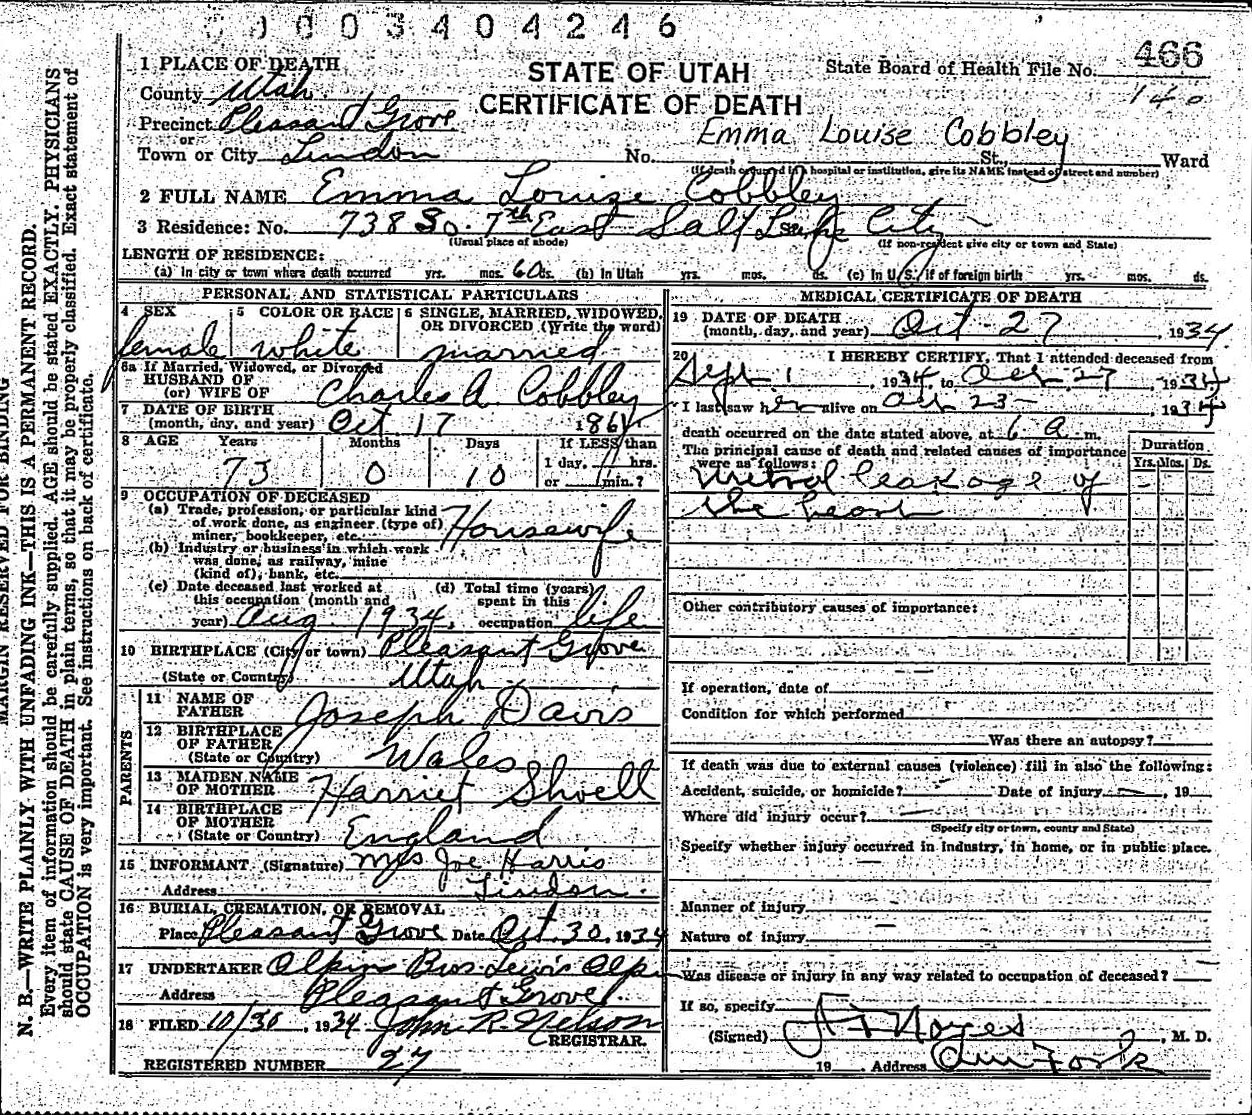 0003404246
1 PLACE OF DEATH
STATE OF UTAH
CERTIFICATE OF DEATH
State Board of Health File No. 466
140
County Utah
Precinct Pleasant Grove
or
Town or City Lindon No. , St., Ward
Emma Louise Cobbley
(If death occurred in a hospital or institution, give its NAME instead of street and number)
2 FULL NAME Emma Louize Cobbley
3 Residence: No. 738 So. 7th East Salt Lake City
(Usual place of abode) (If non-resident give city or town and State)
LENGTH OF RESIDENCE:
(a) In city or town where death occurred yrs. mos. 60 ds. (b) In Utah yrs. mos. ds. (c) In U.S. if of foreign birth yrs. mos. ds.
PERSONAL AND STATISTICAL PARTICULARS
4 SEX 5 COLOR OR RACE 6 SINGLE, MARRIED, WIDOWED, OR DIVORCED (Write the word)
female white married
6a If Married, Widowed, or Divorced
HUSBAND OF
(or) WIFE OF Charles A Cobbley
7 DATE OF BIRTH
(month, day, and year) Oct. 17 1861
8 AGE Years Months Days If LESS than
73 0 10 1 day, hrs.
or min.?
9 OCCUPATION OF DECEASED
(a) Trade, profession, or particular kind
of work done, as engineer (type of)
miner, bookkeeper, etc. Housewife
(b) Industry or business in which work
was done, as railway, mine
(kind of), bank, etc.
(c) Date deceased last worked at
this occupation (month and
year) Aug. 1934.
(d) Total time (years)
spent in this
occupation life
10 BIRTHPLACE (City or town) Pleasant Grove
(State or Country) Utah
PARENTS
11 NAME OF
FATHER Joseph Davis
12 BIRTHPLACE
OF FATHER
(State or Country) Wales
13 MAIDEN NAME
OF MOTHER Harriet Shoell
14 BIRTHPLACE
OF MOTHER
(State or Country) England
15 INFORMANT (Signature) Mrs Joe Harris
Address Lindon.
16 BURIAL, CREMATION, OR REMOVAL
Place Pleasant Grove Date Oct. 30, 1934
17 UNDERTAKER Olpin Bros Lewis Olpin
Address Pleasant Grove
18 FILED 10/30, 1934 John R. Nelson
REGISTRAR.
REGISTERED NUMBER 27
MEDICAL CERTIFICATE OF DEATH
19 DATE OF DEATH
(month, day, and year) Oct 27, 1934
20 I HEREBY CERTIFY, That I attended deceased from
Sept 1, 1934, to Oct 27, 1934
I last saw her alive on Oct 23, 1934
death occurred on the date stated above, at 6 a m.
The principal cause of death and related causes of importance
were as follows:
Duration
Yrs. Mos. Ds.
Mitral leakage of
the heart
Other contributory causes of importance:
If operation, date of
Condition for which performed
Was there an autopsy?
If death was due to external causes (violence) fill in also the following:
Accident, suicide, or homicide? Date of injury , 19
Where did injury occur?
(Specify city or town, county and State)
Specify whether injury occurred in industry, in home, or in public place.
Manner of injury
Nature of injury
Was disease or injury in any way related to occupation of deceased?
If so, specify
(Signed) Noyes, M. D.
19 Address Am Fork
MARGIN RESERVED FOR BINDING
N. B.—WRITE PLAINLY WITH UNFADING INK—THIS IS A PERMANENT RECORD.
Every item of information should be carefully supplied. AGE should be stated EXACTLY. PHYSICIANS
should state CAUSE OF DEATH in plain terms, so that it may be properly classified. Exact statement of
OCCUPATION is very important. See instructions on back of certificate.